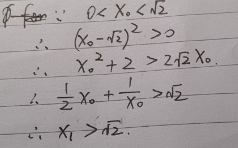 ∵ 0 < x₀ < √2
∴ (x₀-√2)² > 0
∴ x₀² + 2 > 2√2 x₀.
∴ 1/2 x₀ + 1/x₀ > √2
∴ x₁ > √2.